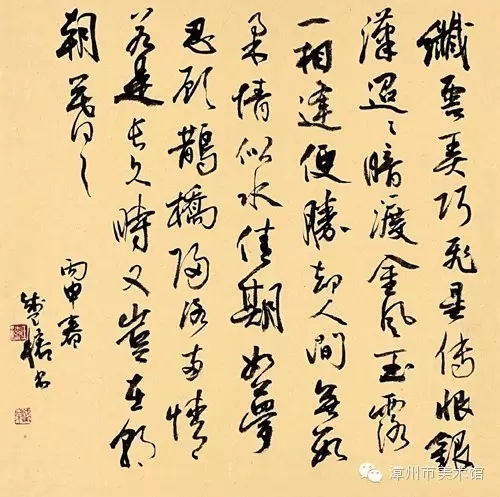 纖雲弄巧飛星傳恨銀
漢迢々暗渡金風玉露
一相逢便勝却人間無數
柔情似水佳期如夢
忍顧鵲橋歸路兩情
若是長久時又豈在朝
朝暮々
丙申春
書
漳州市美术馆